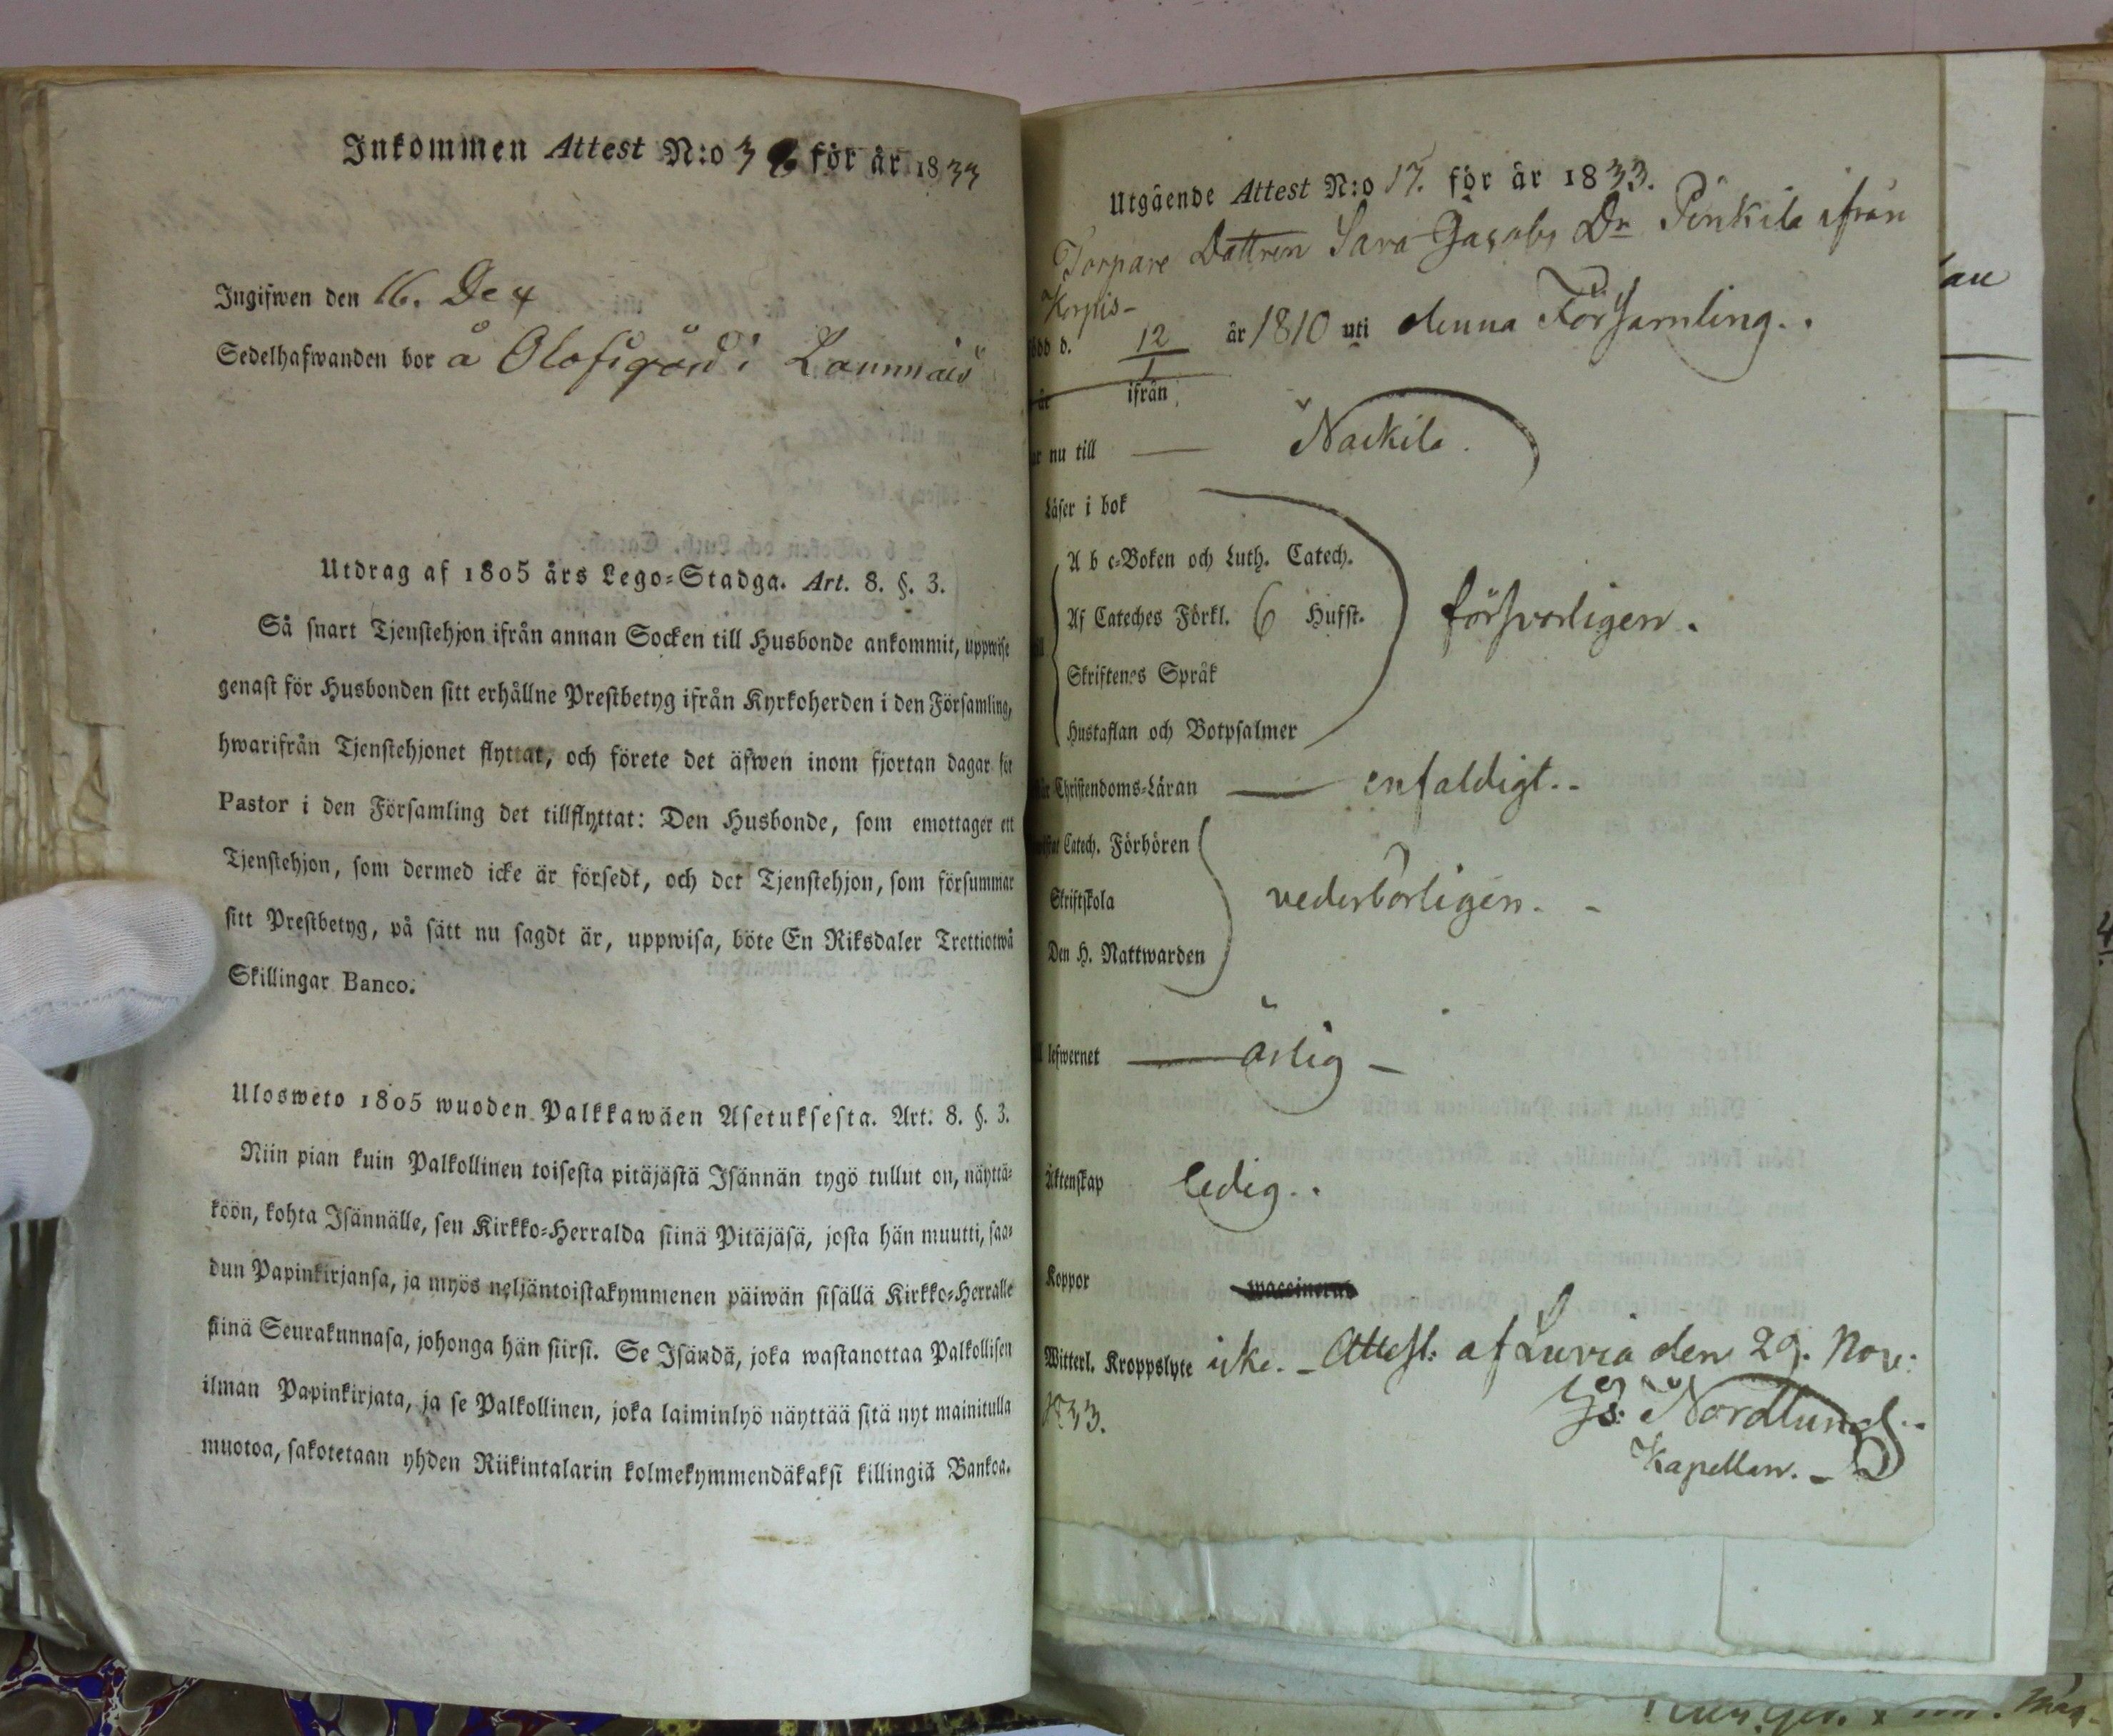 Inkommen Attest N:o 3 för år 1833
Ingifwen den 16. Dec
Sedelhafwanden bor å Olofsgård i
Utdrag af 1805 års Lego-Stadga. Art. 8. §. 3.
Så snart Tjenstehjon ifrån annan Socken till Husbonde ankommit, uppwise
genast för Husbonden sitt erhållne Prestbetyg ifrån Kyrkoherden i den Församling,
hwarifrån Tjenstehjonet flyttat, och förete det äfwen inom fjortan dagar för
Pastor i den Församling det tillflyttat: Den Husbonde, som emottager ett
Tjenstehjon, som dermed icke är försedt, och det Tjenstehjon, som försummar
sitt Prestbetyg, på sätt nu sagdt är, uppwisa, böte En Riksdaler Trettiotwå
Skillingar Banco.
Ulosweto 1805 wuoden Palkkawäen Asetuksesta. Art. 8. §. 3.
Niin pian kuin Palkollinen toisesta pitäjästä Isännän tygö tullut on, näyttä-
köön, kohta Isännälle, sen Kirkko-Herralda siinä Pitäjäsä, josta hän muutti, saa-
dun Papinkirjansa, ja myös neljäntoistakymmenen päiwän sisällä Kirkko-Herralle
siinä Seurakunnasa, johonga hän siirsi. Se Isändä, joka wastanottaa Palkollisen
ilman Papinkirjata, ja se Palkollinen, joka laiminlyö näyttää sitä nyt mainitulla
muotoa, sakotetaan yhden Riikintalarin kolmekymmendäkaksi killingiä Bankoa.
Utgående Attest N:o 17. för år 1833.
Torpare Dattren Sara Jacobs Dr Penkila ifrån
Korpis-
ödd d. 12/1 år 1810 uti denna Församling.
år ifrån
ar nu till — Nackila.
Läser i bok
A b c-Boken och Luth. Catech.
Af Cateches Förkl. 6 Hufst. försvarligen.
Skriftenes Språk
Hustaflan och Botpsalmer
Christendoms-Läran — enfaldigt.
Catech. Förhören
Skriftskola vederbörligen. -
Den H. Nattwarden
lefwernet — ärlig -
Äktenskap ledig.
Koppor
Witterl. Kroppslyte icke. - Attest: af Luvia den 29. Nov:
1833.
Gs: Nordlund
Kapellan. -